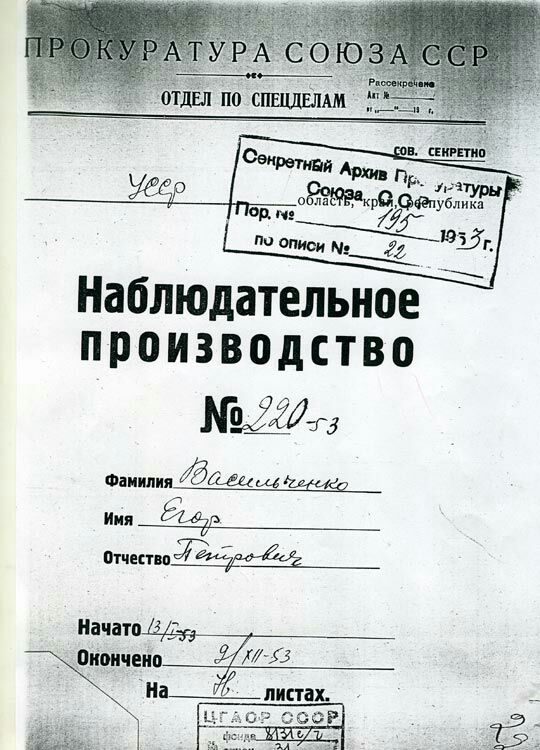 ПРОКУРАТУРА СОЮЗА ССР
ОТДЕЛ ПО СПЕЦДЕЛАМ
Рассекречено
Акт №
от „ “ 19 г.
СОВ. СЕКРЕТНО
Секретный Архив Прокуратуры
Союза С.С.Р.
УССР
область, край, республика
Пор. № 195 1953 г.
по описи № 22
Наблюдательное
производство
№ 220-53
Фамилия Васильченко
Имя Егор
Отчество Петрович
Начато 13/I-53
Окончено 9/XII-53
На листах.
ЦГАОР СССР
фонда 8131с/ч
31